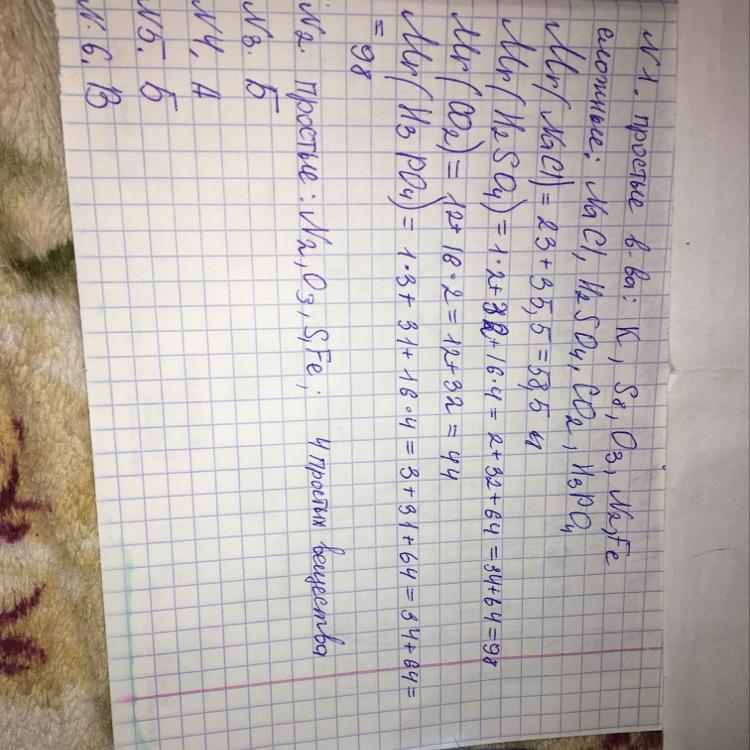 N1. простые в-ва: K, S8, O3, N2, Fe
сложные: NaCl, H2SO4, CO2, H3PO4
Mr(NaCl) = 23+35,5 = 58,5 ч
Mr(H2SO4) = 1·2+32+16·4 = 2+32+64 = 34+64 = 98
Mr(CO2) = 12+16·2 = 12+32 = 44
Mr(H3PO4) = 1·3+31+16·4 = 3+31+64 = 34+64 =
= 98
N2. Простые: N2, O3, S, Fe; 4 простых вещества
N3. Б
N4. А
N5. Б
N.6. В